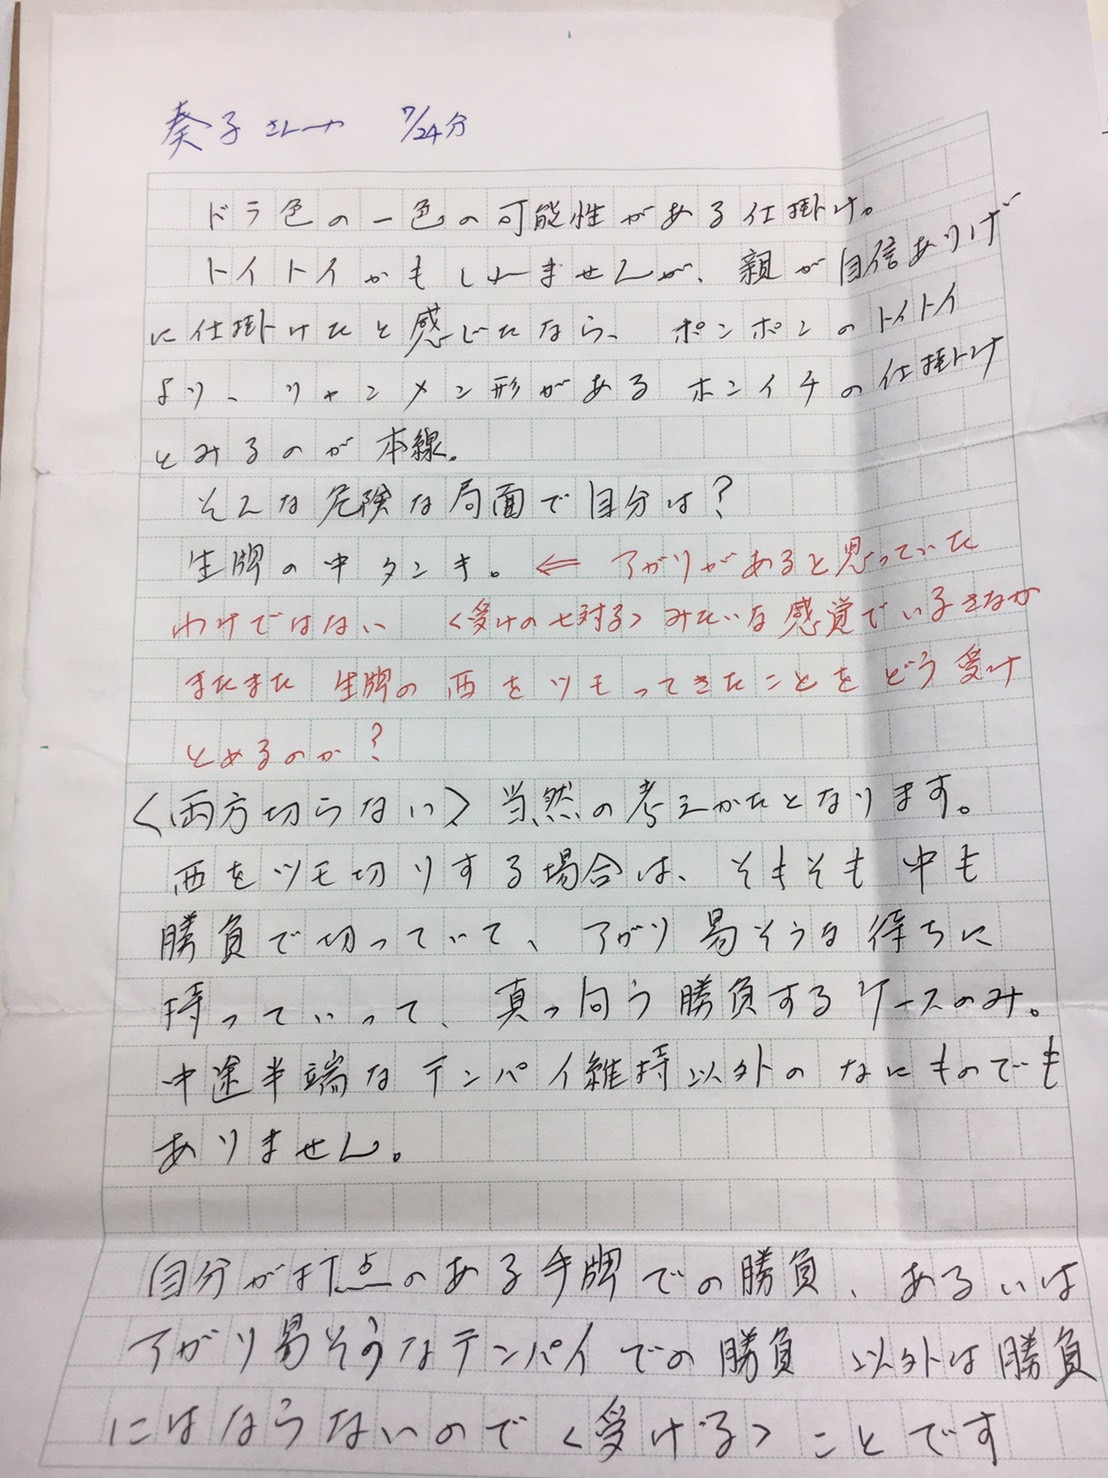 奏子さんへ 7/24分
ドラ色の一色の可能性がある仕掛け。
トイトイかもしれませんが、親が自信ありげ
に仕掛けたと感じたなら、ポンポンのトイトイ
より、リャンメン形があるホンイチの仕掛け
とみるのが本線。
そんな危険な局面で自分は?
生牌の中タンキ。⇐ アガリがあると思っていた
わけではない 〈受けの七対子〉みたいな感覚でいるさなか
またまた 生牌の西をツモってきたことをどう受け
とめるのか?
〈両方切らない〉当然の考えかたとなります。
西をツモ切りする場合は、そもそも中も
勝負で切っていて、アガリ易そうな待ちに
持っていって、真っ向う勝負するケースのみ。
中途半端なテンパイ維持以外のなにものでも
ありません。
自分が打点のある手牌での勝負、あるいは
アガリ易そうなテンパイでの勝負 以外は勝負
にはならないので〈受ける〉ことです